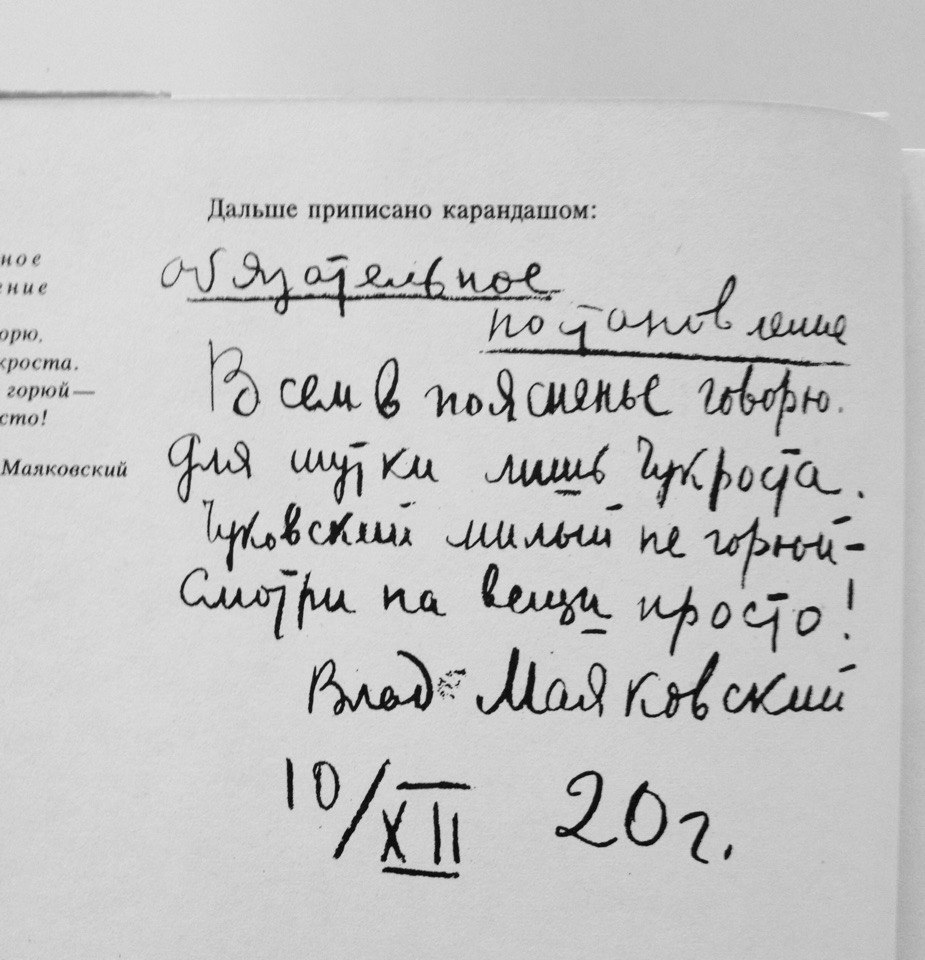 Дальше приписано карандашом:
ное
ение
обязательное
постановление
орю.
Всем в поясненье говорю.
кроста.
горюй—
Для шутки лишь Чукроста.
сто!
Маяковский
Чуковский милый не горюй-
Смотри на вещи просто!
Влад Маяковский
10/XII 20г.